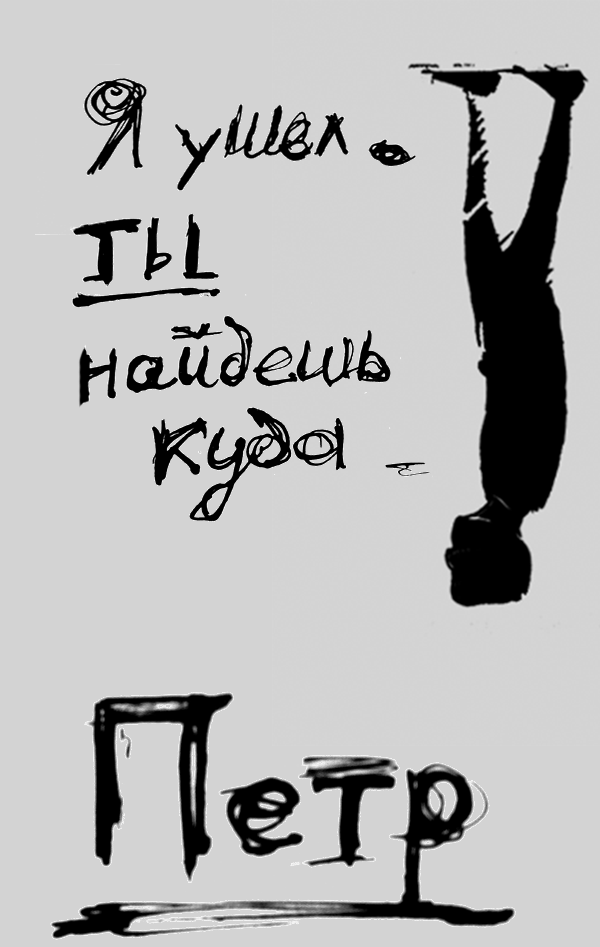 Я ушел.
ты
найдешь
куда
Петр